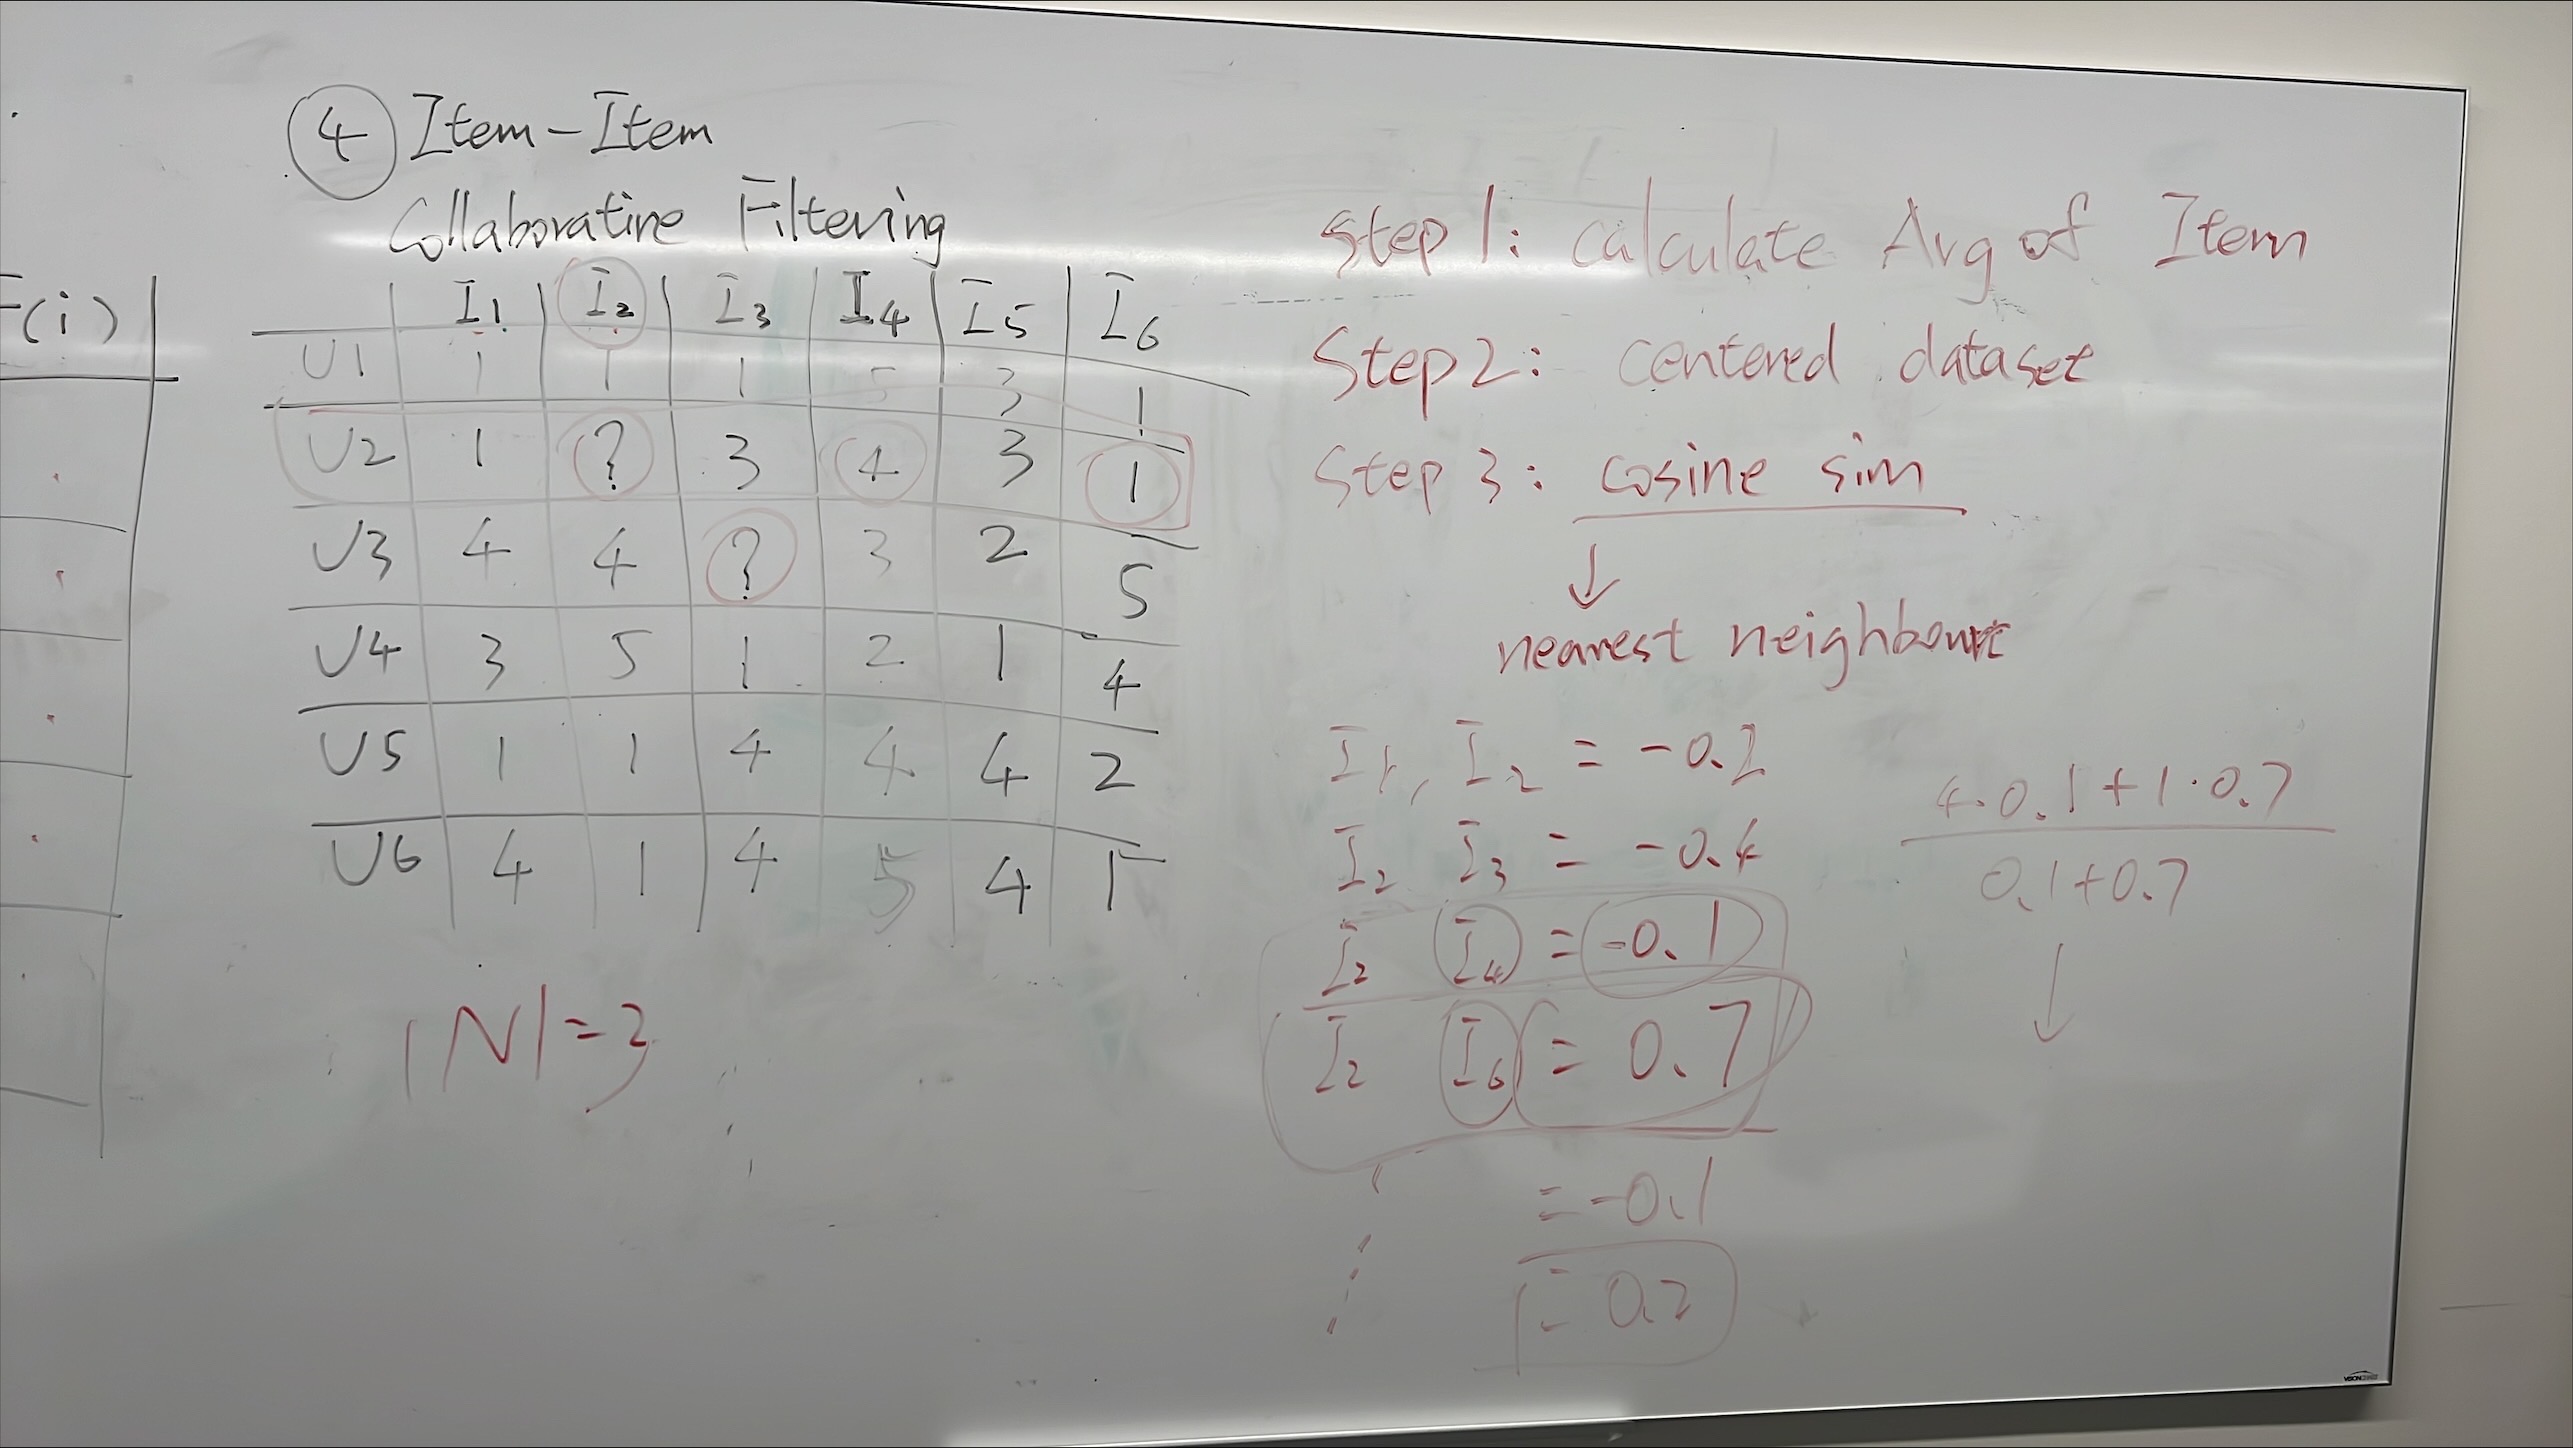 F(i)
④ Item-Item
Collaborative Filtering
I1 I2 I3 I4 I5 I6
U1 1 1 1 5 3 1
U2 1 ? 3 4 3 1
U3 4 4 ? 3 2 5
U4 3 5 1 2 1 4
U5 1 1 4 4 4 2
U6 4 1 4 5 4 1
|N|=3
Step 1: Calculate Avg of Item
Step 2: centered dataset
Step 3: cosine sim
↓
nearest neighbour
I1, I2 = -0.2
I2 I3 = -0.4
I2 I4 = -0.1
I2 I6 = 0.7
= -0.1
= 0.2
4·0.1+1·0.7
0.1+0.7
↓